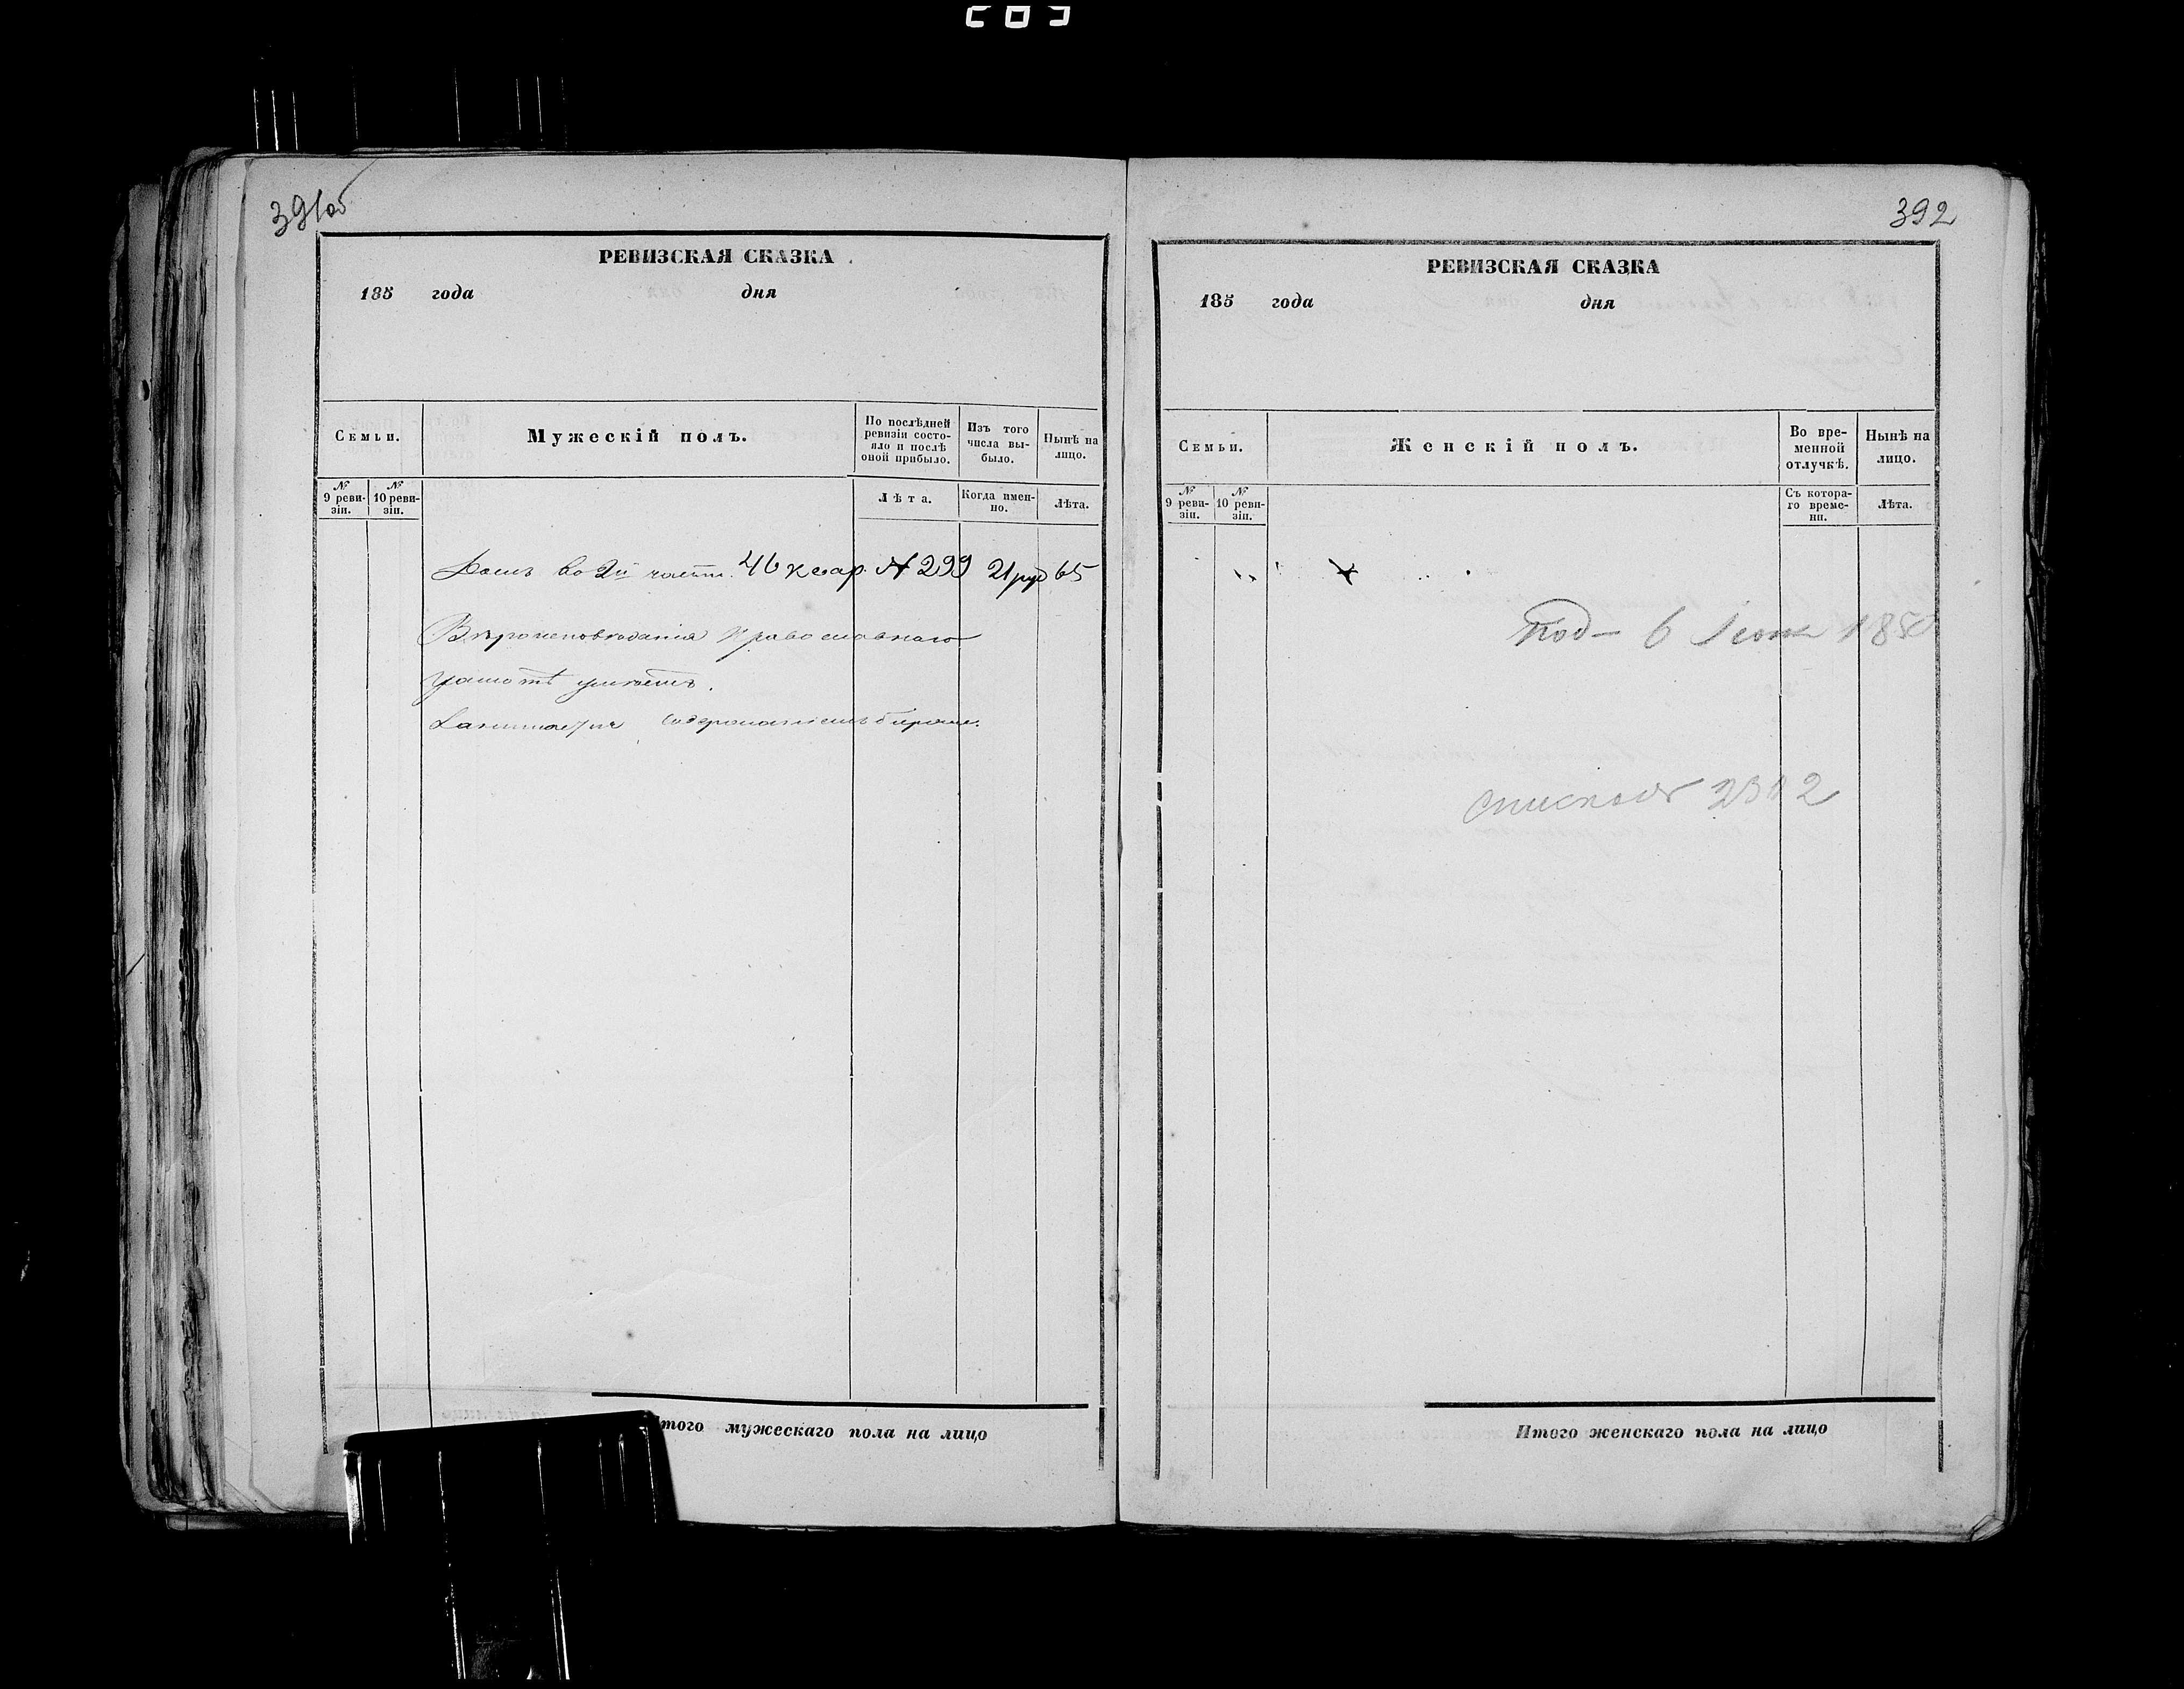 391об
РЕВИЗСКАЯ СКАЗКА
185 года дня
Семьи.
Мужескій полъ.
По послѣдней ревизіи состояло и послѣ оной прибыло.
Изъ того числа выбыло.
Нынѣ на лицо.
№ 9 ревизіи.
№ 10 ревизіи.
Лѣта.
Когда именно.
Лѣта.
Домъ во 2й части 46 квар. № 299 21 руб 65
Вѣроисповѣданія Православнаго
грамотѣ умѣетъ.
Занимается содержаніемъ биржи.
Итого мужескаго пола на лицо
392
РЕВИЗСКАЯ СКАЗКА
185 года дня
Семьи.
Женскій полъ.
Во временной отлучкѣ.
Нынѣ на лицо.
№ 9 ревизіи.
№ 10 ревизіи.
Съ котораго времени.
Лѣта.
Под— 6 Іюня 185
Итого женскаго пола на лицо